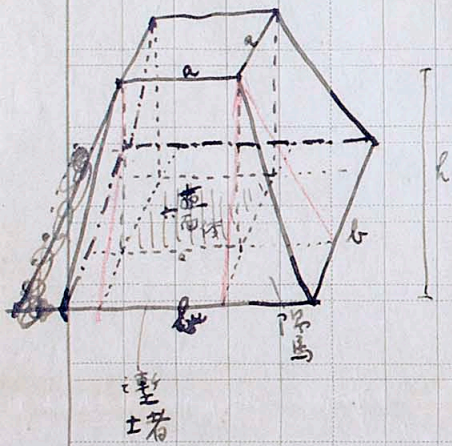 a
a
h
b
陽馬
塹堵